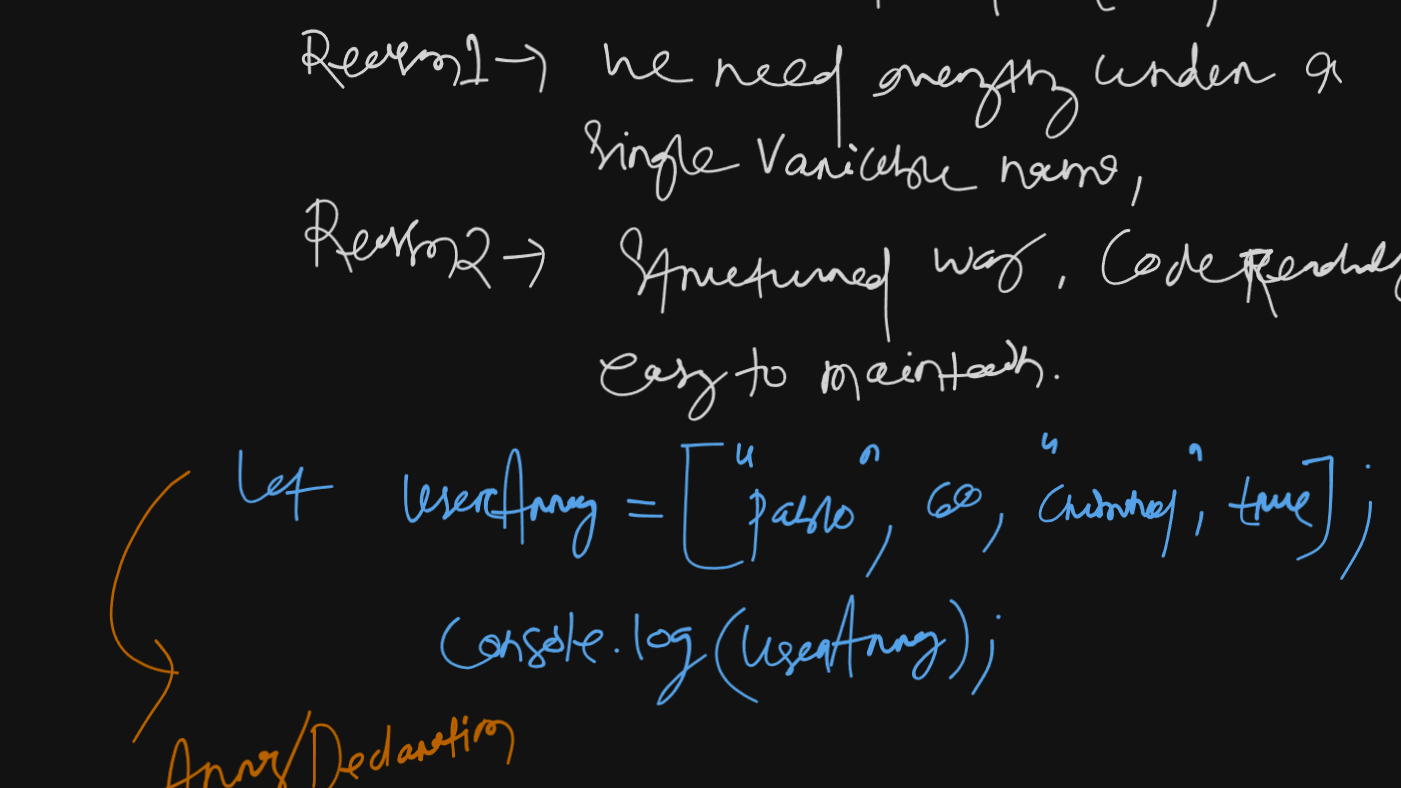 Reason1 → We need everything under a
Single Variable name,
Reason2 → Structured way, Code
easy to maintain.
let userArray = ["pablo", 60, "", true];
Console.log(userArray);
Array/Declaration